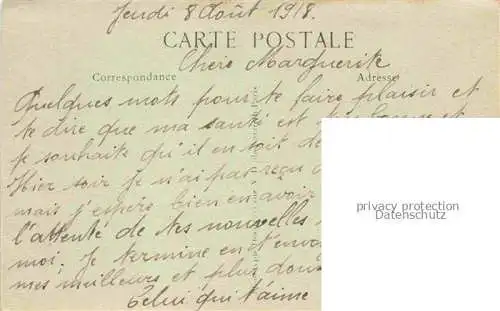 Jeudi 8 Août 1918.
CARTE POSTALE
Chère Marguerite
Correspondance
Adresse
Quelques mots pour te faire plaisir et
te dire que ma santé est très bonne et
je souhaite qu'il en soit de
Hier soir je n'ai pas reçu
mais j'espère bien en avoir
l'attente de tes nouvelles
moi. Je termine en t'envo
mes meilleurs et plus doux
Celui qui t'aime
privacy protection
Datenschutz